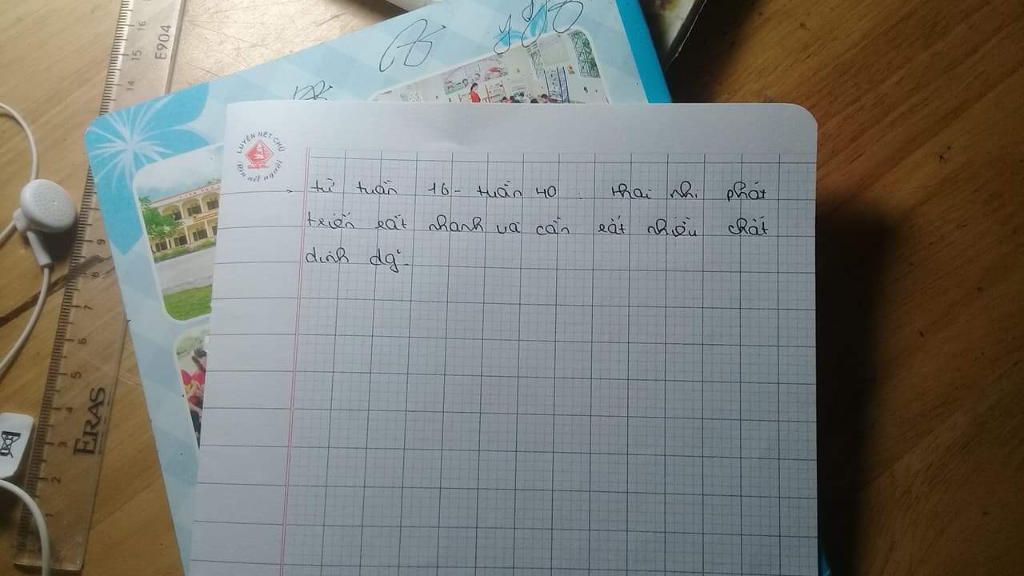 E904
LUYỆN NÉT CHỮ
từ tuần 16 - tuần 40 . thai nhi phát
triển rất nhanh và cần rất nhiều chất
dinh dg~.
ERAS